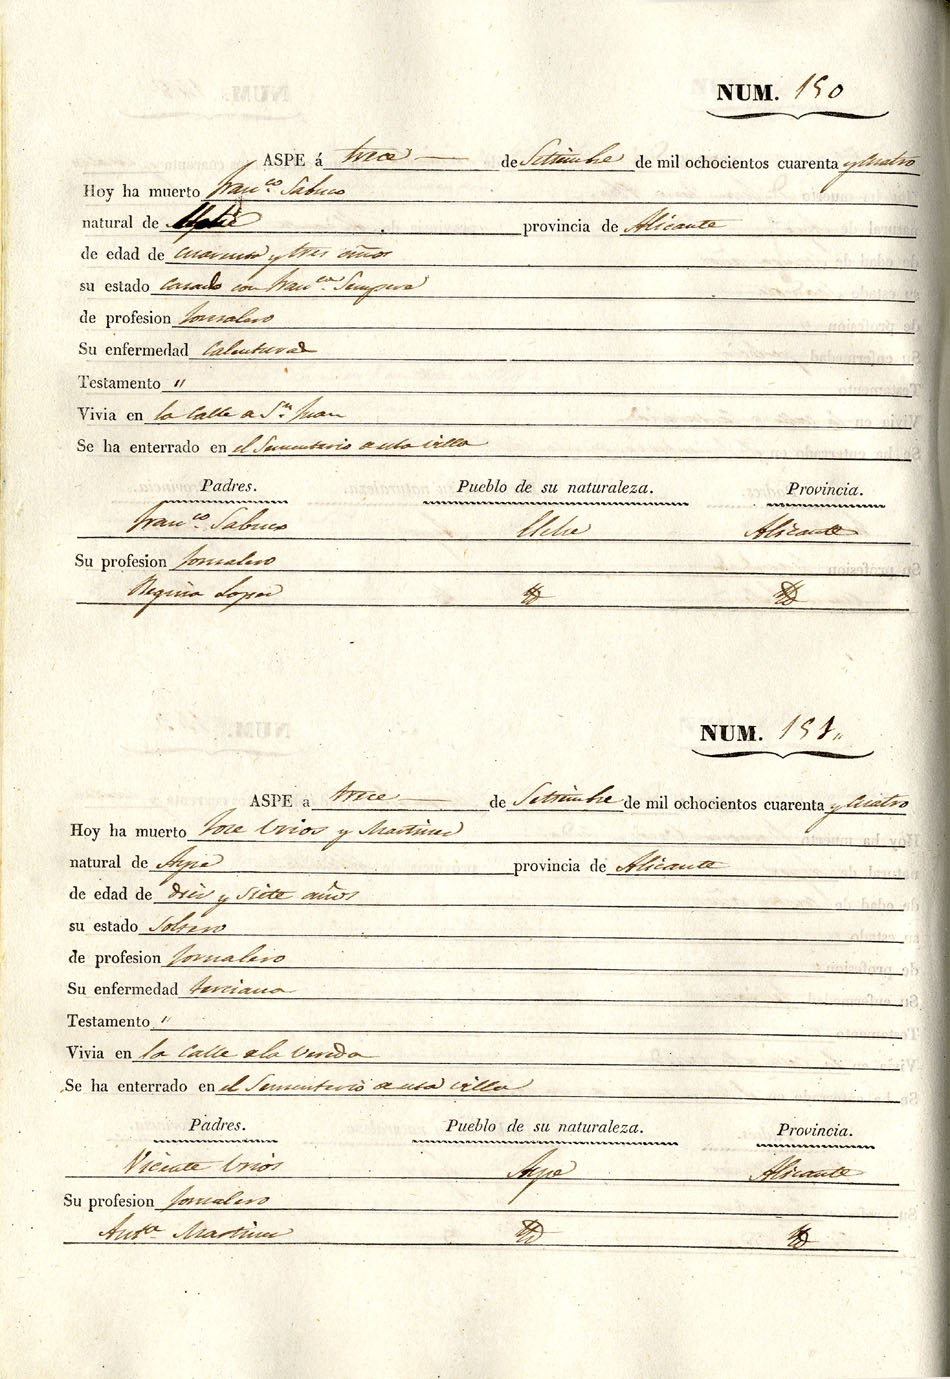 NUM. 150
ASPE á trece de Setiembre de mil ochocientos cuarenta y cuatro
Hoy ha muerto Fran.co Sabuco
natural de provincia de Alicante
de edad de cuarenta y tres años
su estado casado con Fran.ca Sempere
de profesion Jornalero
Su enfermedad Calenturas
Testamento "
Vivia en la Calle a S.n Juan
Se ha enterrado en el Sementerio de esta villa
Padres. Pueblo de su naturaleza. Provincia.
Fran.co Sabuco Elche Alicante
Su profesion Jornalero
Regina Lopez Yd Yd
NUM. 151"
ASPE a trece de Setiembre de mil ochocientos cuarenta y cuatro
Hoy ha muerto Jose Urios y Martinez
natural de Aspe provincia de Alicante
de edad de diez y siete años
su estado soltero
de profesion Jornalero
Su enfermedad terciana
Testamento "
Vivia en la Calle a la Vereda
Se ha enterrado en el Sementerio de esta villa
Padres. Pueblo de su naturaleza. Provincia.
Vicente Urios Aspe Alicante
Su profesion Jornalero
Ant.a Martinez Yd Yd